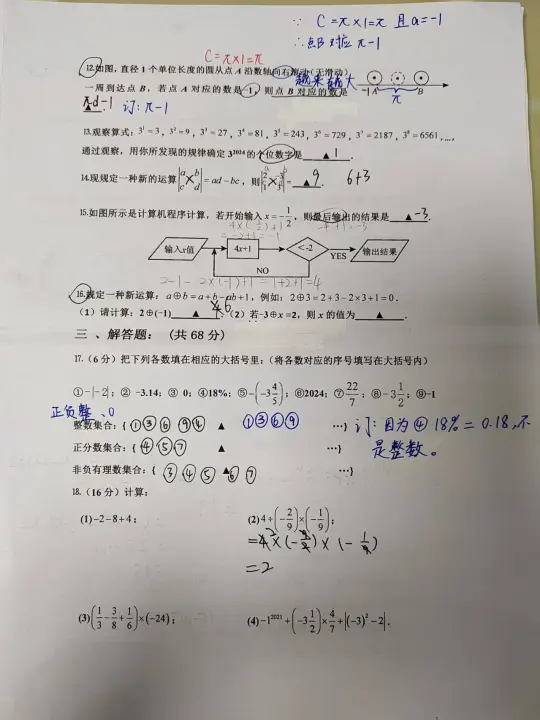 ∵ C=π×1=π 且a=-1
∴点B对应π-1
C=π×1=π
12.如图,直径1个单位长度的圆从点A沿数轴向右滚动(无滑动)
越来越大
一周到达点B,若点A对应的数是-1,则点B对应的数是
-1A B
π
π-1 订:π-1
13.观察算式:3¹=3,3²=9,3³=27,3⁴=81,3⁵=243,3⁶=729,3⁷=2187,3⁸=6561,…,
通过观察,用你所发现的规律确定3²⁰²⁴的个位数字是 ▲ 1 .
14.现规定一种新的运算|a b c d|=ad-bc,则 = ▲ 9 . 6+3
15.如图所示是计算机程序计算,若开始输入x=-1/2,则最后输出的结果是 ▲ -3.
4×(-1/2)+1
=-2+1=-1
-4+1=-3
输入x值 4x+1 <-2 YES 输出结果
NO
2-1-2×(-1)+1=1+2+1=4
16.规定一种新运算:a⊕b=a+b-ab+1,例如:2⊕3=2+3-2×3+1=0.
(1)请计算:2⊕(-1) ▲ 6 .(2)若-3⊕x=2,则x的值为 ▲ .
三、解答题:(共68分)
17.(6分)把下列各数填在相应的大括号里:(将各数对应的序号填写在大括号内)
①-|-2|;② -3.14;③ 0;④18%;⑤-(-3 4/5);⑥2024;⑦22/7;⑧-3 1/2;⑨-1
正负整、0
整数集合:{ ①③⑥⑨④ ▲ ①③⑥⑨ …} 订:因为④18%=0.18,不
是整数。
正分数集合:{ ④⑤⑦ ▲ …}
非负有理数集合:{ ③④⑤▲⑥⑦ …}
18.(16分)计算:
(1)-2-8+4; (2)4÷(-2/9)×(-1/9);
=4×(-9/2)×(-1/9)
=2
(3)(1/3-3/8+1/6)×(-24); (4)-1²⁰²¹+(-3 1/2)×4/7+|(-3)²-2|.